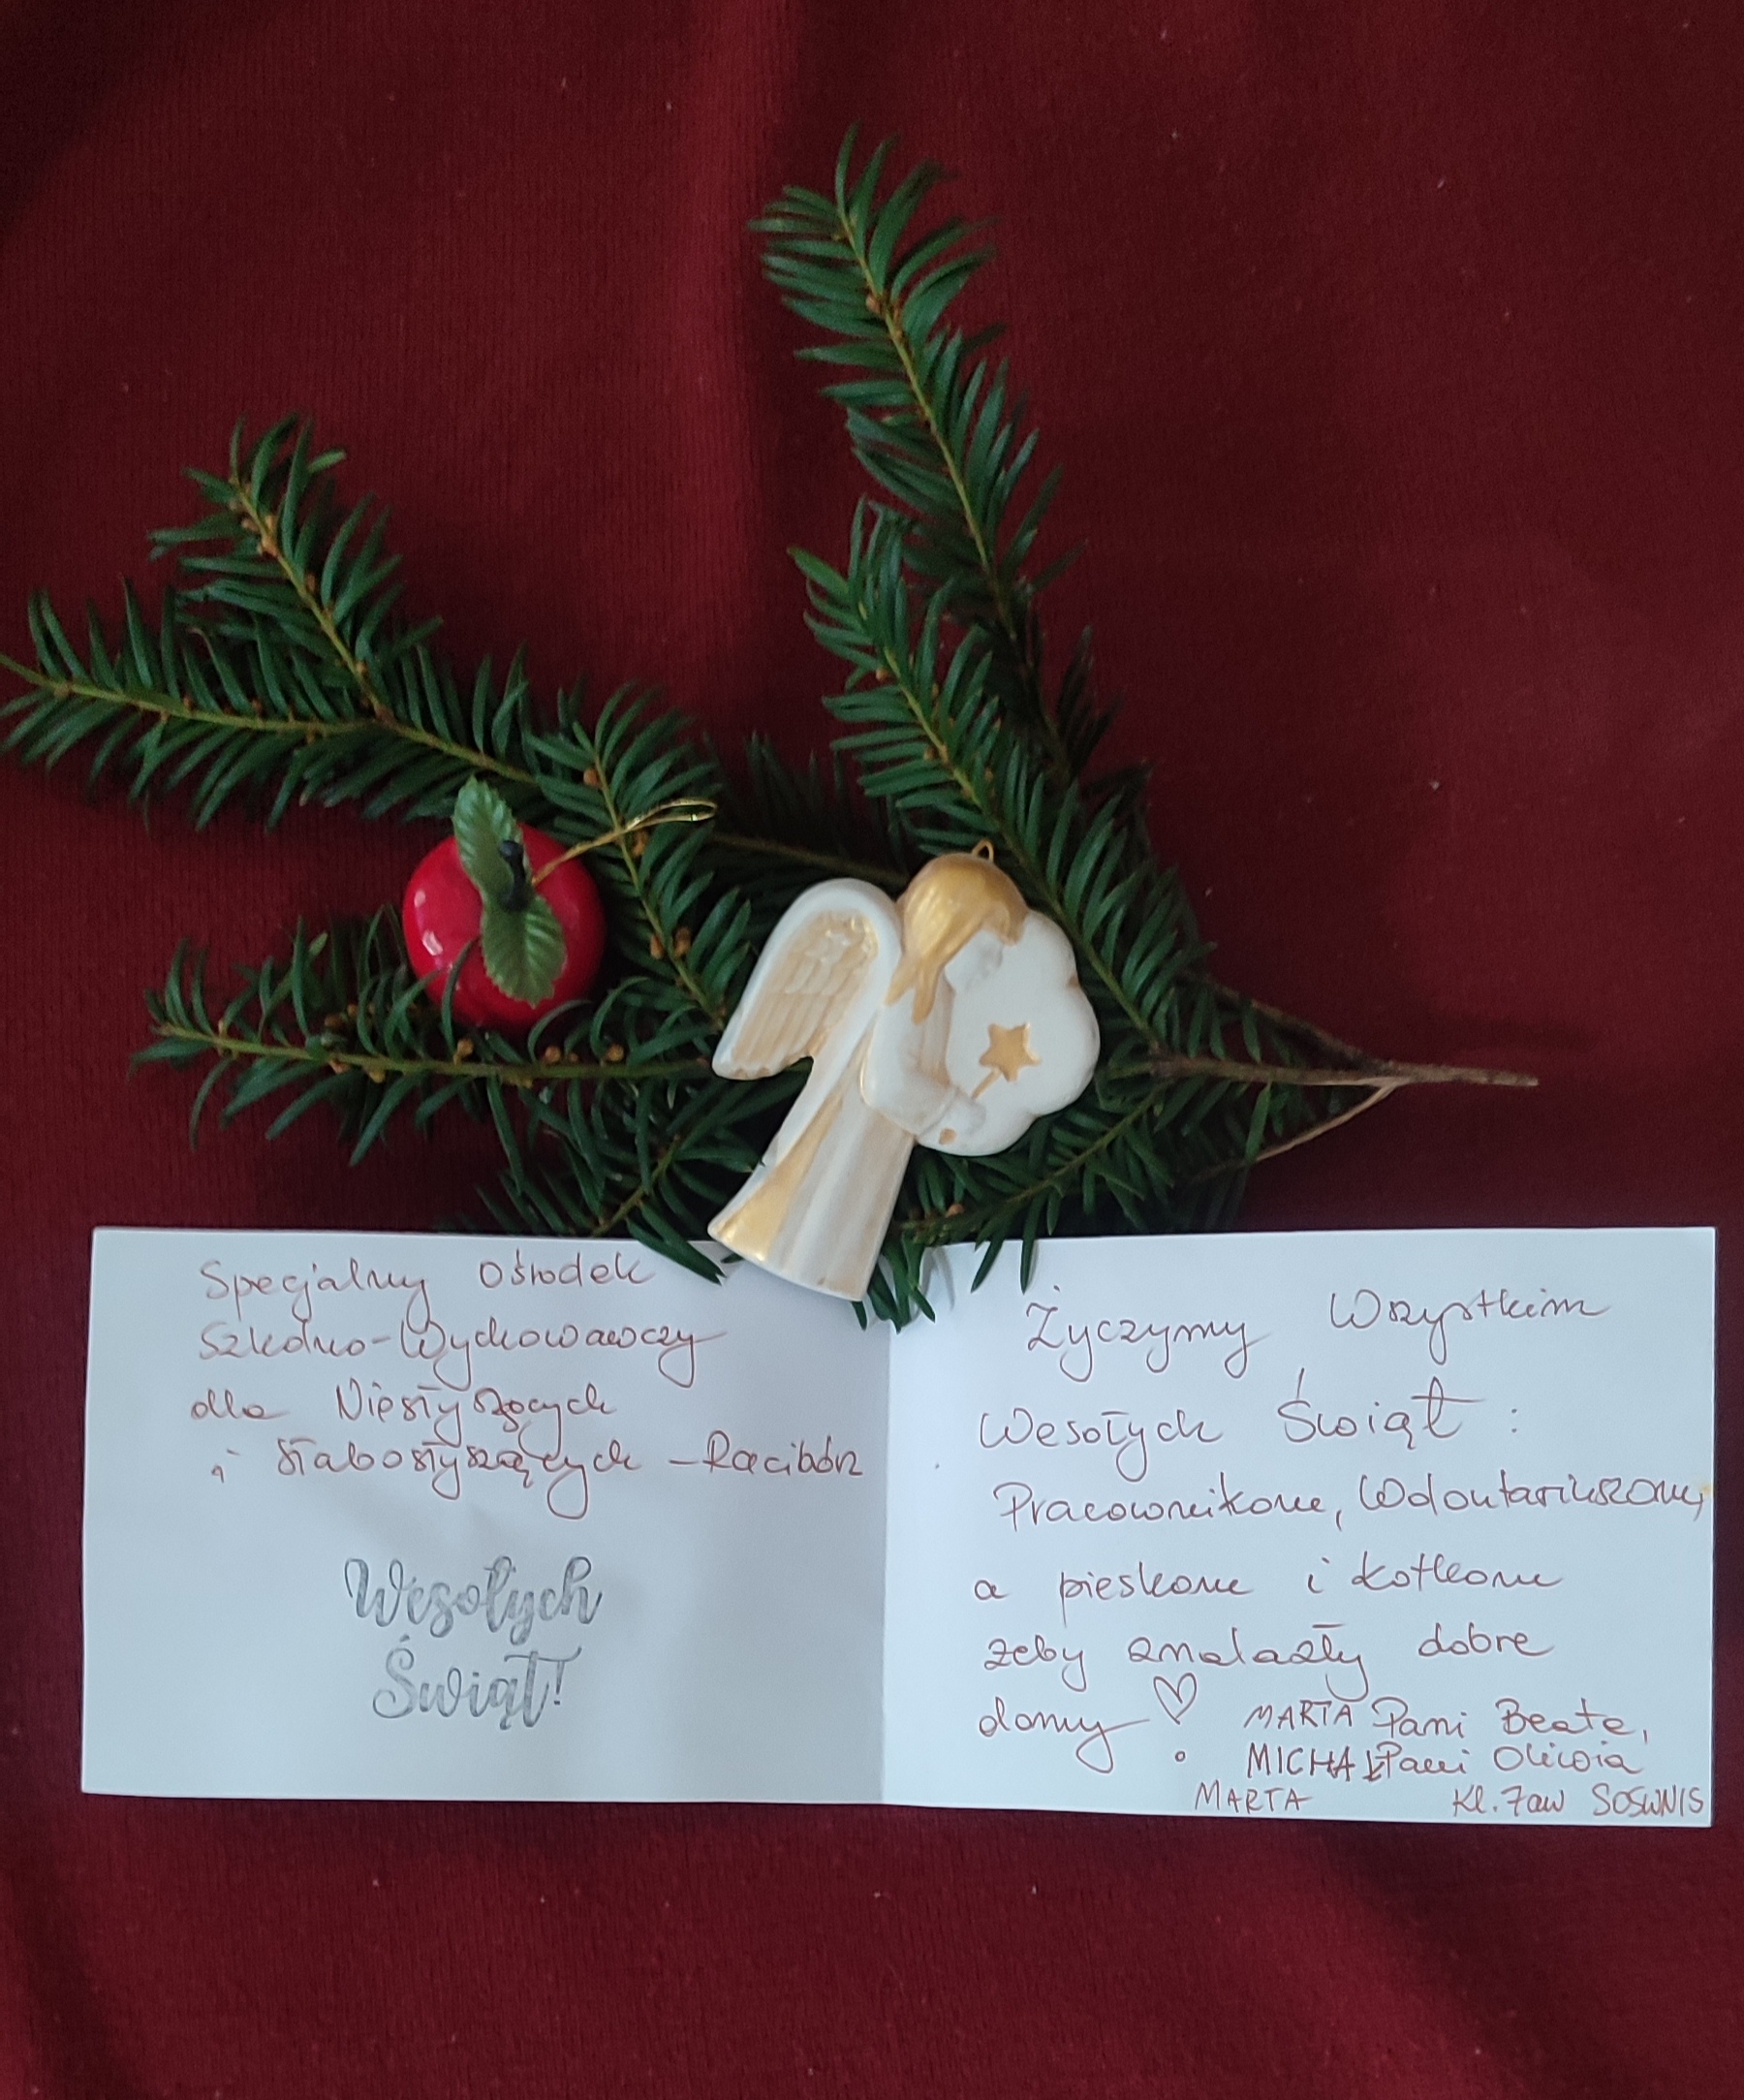 Specjalny Ośrodek
Szkolno-Wychowawczy
dla Niesłyszących
i Słabosłyszących - Racibórz
Wesołych
Świąt!
Życzymy Wszystkim
Wesołych Świąt :
Pracownikom, Wolontariuszom,
a pieskom i kotkom
żeby znalazły dobre
domy ♡
MARTA Pani Beata,
MICHAŁ Pani Oliwia
MARTA Kl. 7aw SOSWNIS